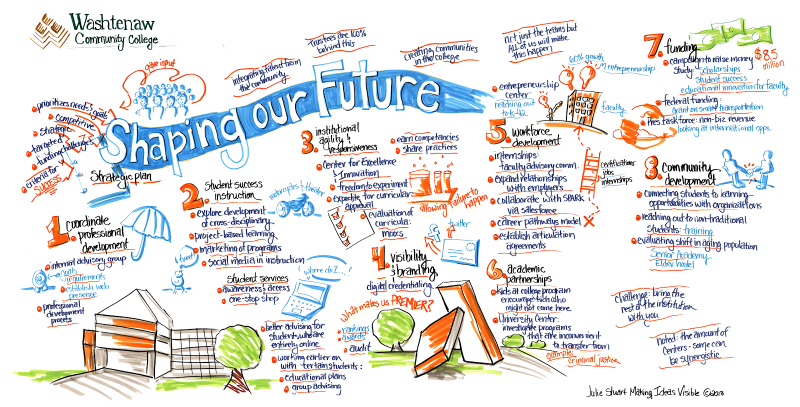 Washtenaw
Community College
gave input
prioritizes needs & goals
competitive
strategic
targeted
funding challenges
criteria for
success
Shaping our Future
Strategic plan
integrating talent from
the community
Trustees are 100%
behind this
creating communities
in the college
not just the teams but
All of us will make
this happen
1. coordinate
professional
development
internal advisory group
goals
requirements
establish web
presence
professional
development
2. Student success
instruction
explore development
of cross-disciplinary
project-based learning
marketing of programs
social media in instruction
motorcycles + theatre
tweet
Student services
awareness & access
one-stop shop
where do I...?
better advising for
students who are
entirely online
working earlier on
with certain students:
educational plans
group advising
3. institutional
agility &
responsiveness
Center for Excellence
& Innovation
freedom to experiment
expedite for curricular
approval
evaluation of
curricula:
moocs
earn competencies
share practices
allowing failure to
happen
twitter
4. visibility
& branding
digital credentialing
What makes us PREMIER?
rankings
awards
audit
entrepreneurship
center:
reaching out
to K-12
60% growth
in entrepreneurship
faculty
5. workforce
development
internships:
faculty advisory comm.
expand relationships
with employers
collaborate with SPARK
via salesforce
career pathways model
establish articulation
agreements
certifications
jobs
internships
6. academic
partnerships
kids at college program
encourage kids who
might not come here
University Center:
investigate programs
that are inconvenient
to transfer from
example:
criminal justice
7. funding
campaign to raise money
$8.5
million
Study: scholarships
student success
educational innovation for faculty
federal funding:
grant on smart transportation
Pres. task force: non-biz revenue
looking at international opps.
8. Community
development
connecting students to learning
opportunities with organizations
reaching out to non-traditional
students: training
evaluating shift in aging population
Senior Academy
Elder model
Challenge: bring the
rest of the institution
with you
noted: the amount of
centers: some can
be synergistic
Julie Stuart Making Ideas Visible ©2013